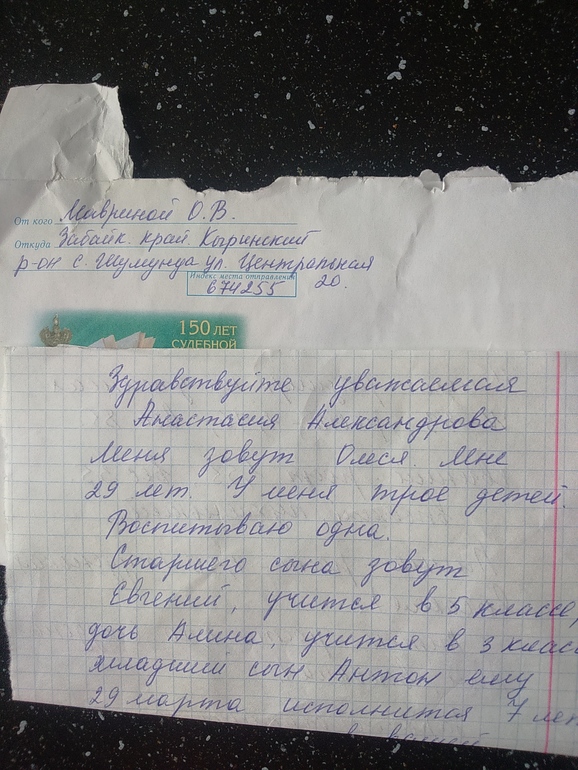 От кого Мавриной О.В.
Откуда Забайк. край Кыринский
р-он с. Шумунда ул. Центральная
Индекс места отправления
674255 20.
150 ЛЕТ
СУДЕБНОЙ
Здравствуйте уважаемая
Анастасия Александрова
Меня зовут Олеся. Мне
29 лет. У меня трое детей.
Воспитываю одна.
Старшего сына зовут
Евгений, учится в 5 классе,
дочь Алина, учится в 3 класс
младший сын Антон ему
29 марта исполнится 7 лет